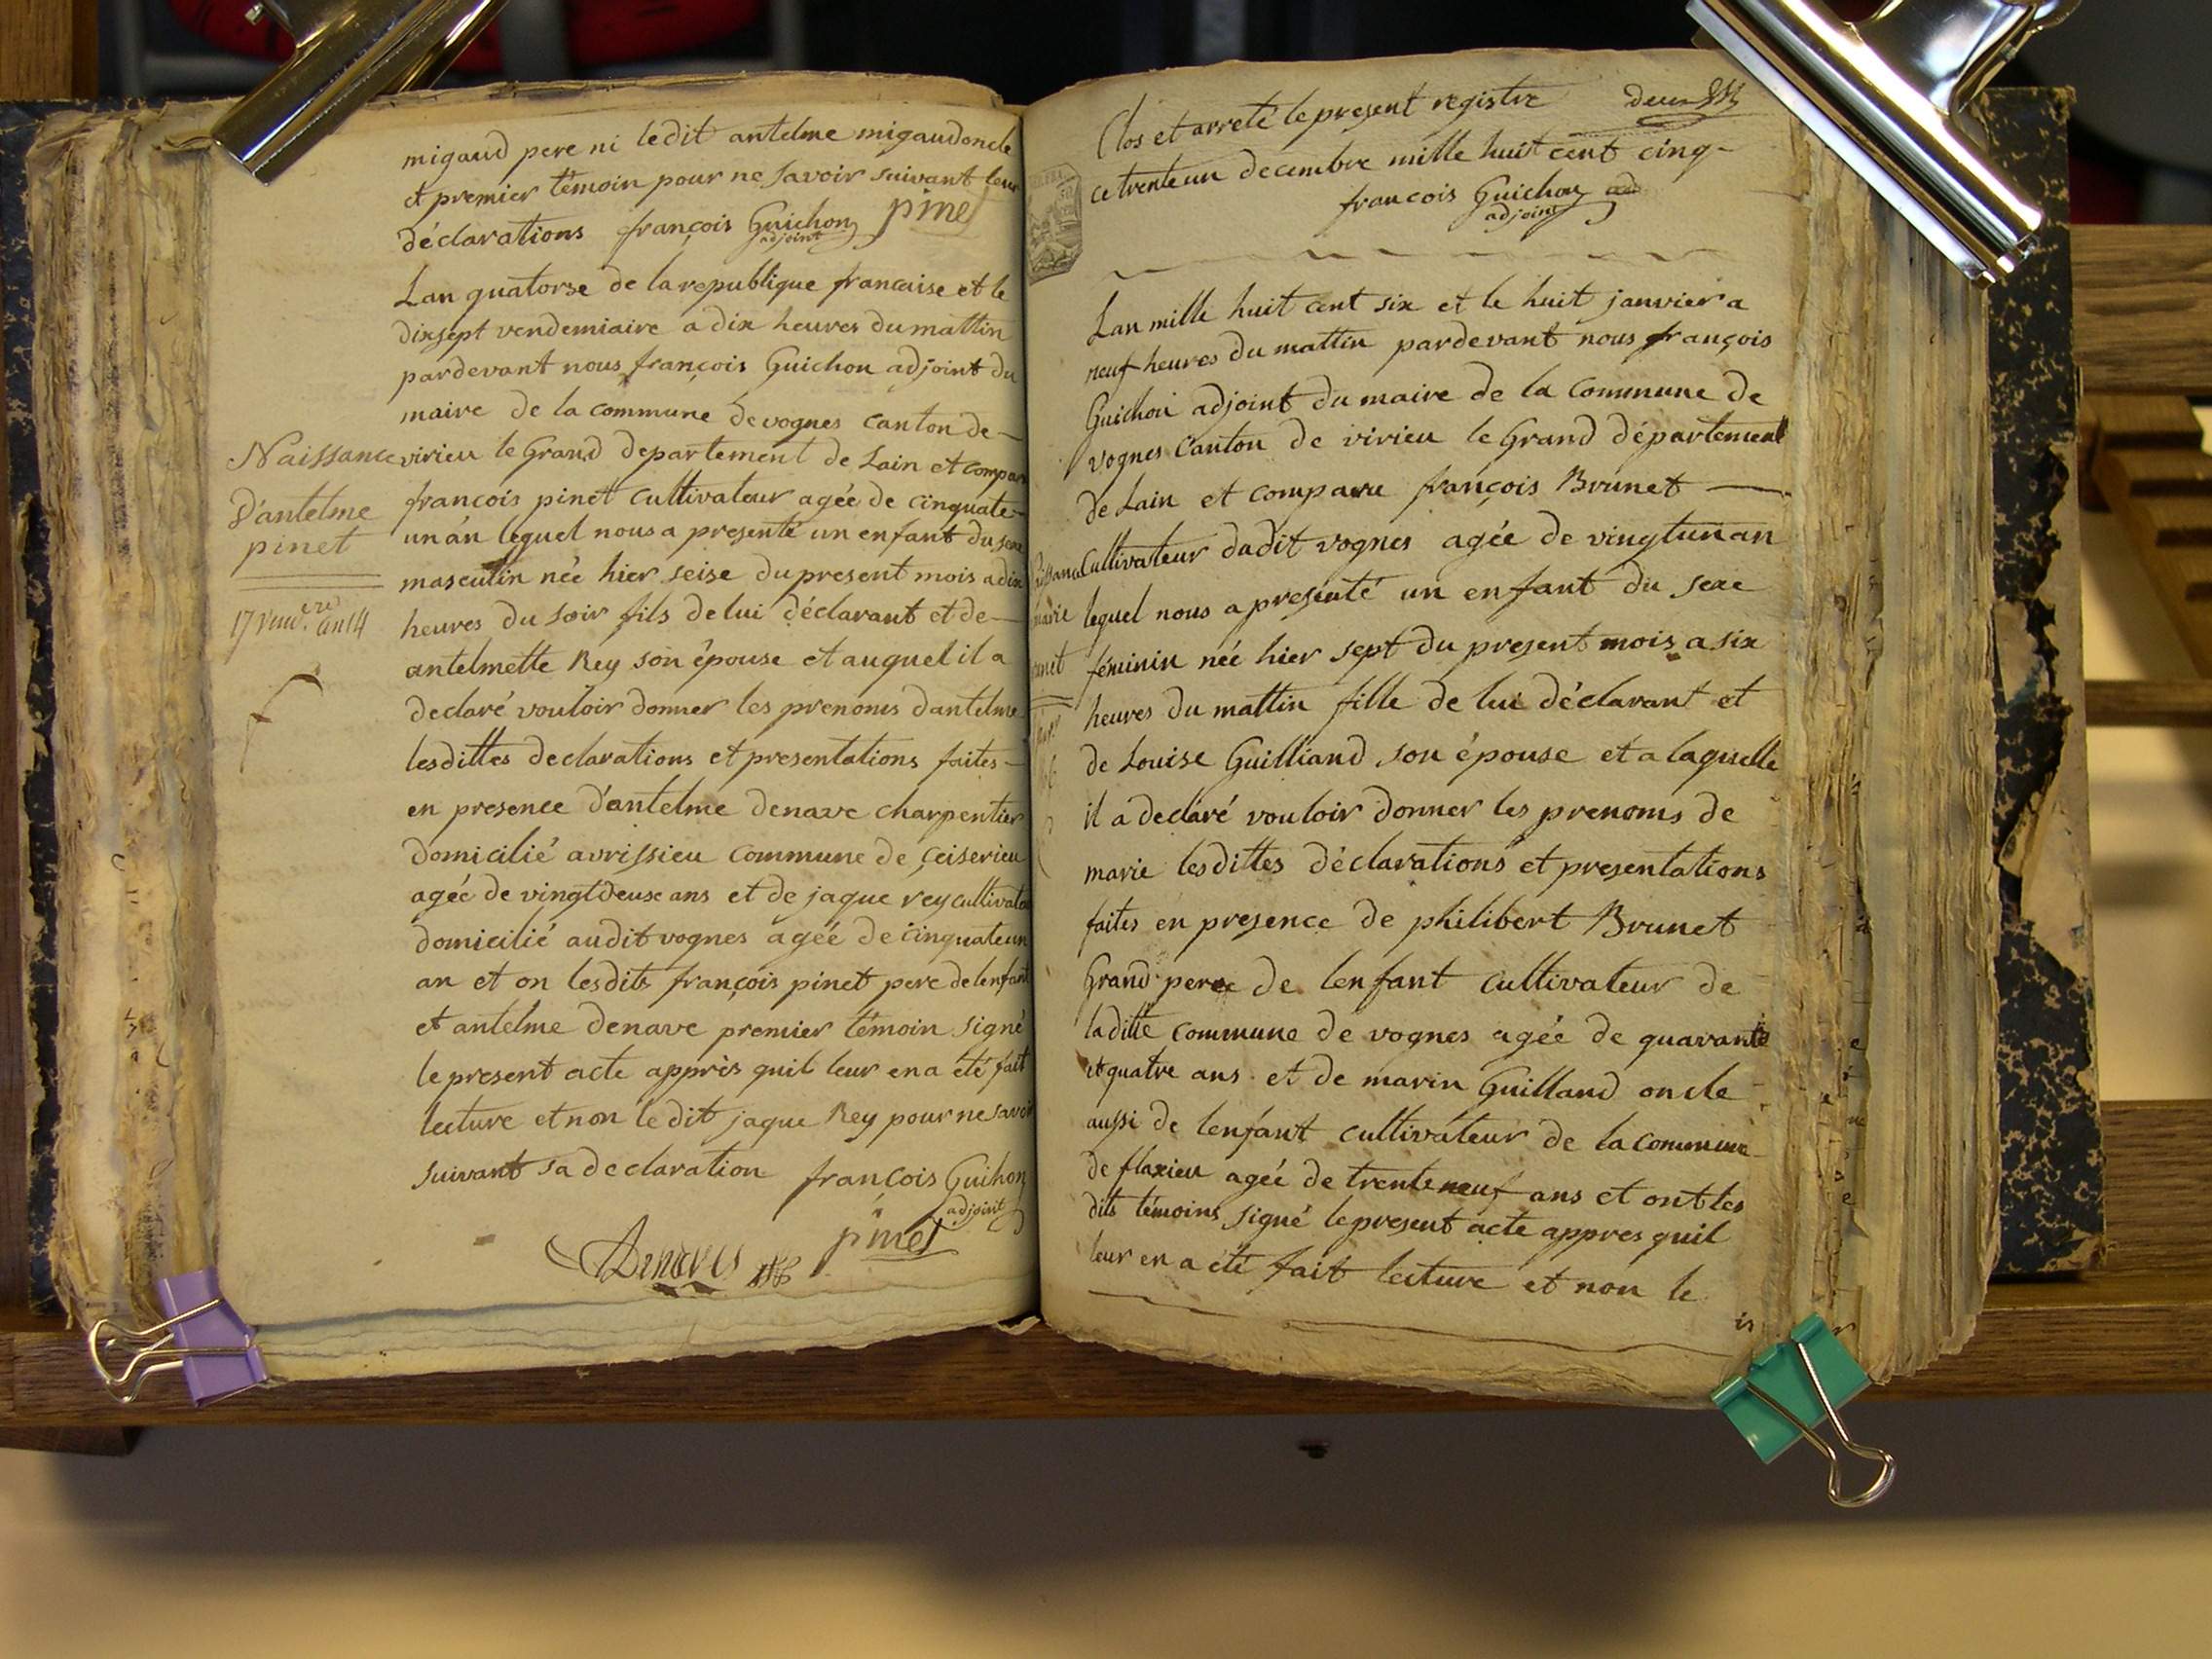 migaud pere ni ledit antelme migaud oncle
et premier témoin pour ne savoir suivant leur
déclarations françois Guichon pinet
adjoint
Lan quatorse de la republique francaise et le
dixsept vendemiaire a dix heures du mattin
pardevant nous françois Guichon adjoint du
maire de la commune de vognes canton de
virieu le Grand departement de Lain et compar
françois pinet cultivateur agée de cinquate
un an lequel nous a presenté un enfant du sexe
masculin née hier seise du present mois a dix
heures du soir fils de lui déclarant et de
antelmette Rey son épouse et auquel il a
declaré vouloir donner les prenoms dantelme
lesdittes declarations et presentations faites
en presence d'antelme denave charpentier
domicilié avrissieu commune de ceiserieu
agée de vingtdeuse ans et de jaque rey cultivate
domicilié audit vognes agéé de cinquateun
an et on lesdits françois pinet pere de lenfant
et antelme denave premier témoin signé
le present acte appris quil leur en a été fait
lecture et non le dit jaque Rey pour ne savoir
suivant sa declaration françois Guihon
adjoint
pinet
Naissance
D'antelme
pinet
17 vend.re an 14
Clos et arreté le present registre deux
ce trente un decembre mille huit cent cinq
francois Guichon ad
adjoint
Lan mille huit cent six et le huit janvier a
neuf heures du mattin pardevant nous françois
Guichon adjoint du maire de la Commune de
vognes Canton de virieu le Grand département
de Lain et comparu françois Brunet
Cultivateur dudit vognes agée de vingtun an
lequel nous a presenté un enfant du sexe
féminin née hier sept du present mois a six
heures du mattin fille de lui déclarant et
de Louise Guilliand son épouse et a laquelle
il a declaré vouloir donner les prenoms de
marie lesdittes déclarations et presentations
faites en presence de philibert Brunet
Grand pere de lenfant cultivateur de
laditte commune de vognes agée de quarante
et quatre ans et de marin Guilland oncle
aussi de lenfant cultivateur de la commune
de flaxieu agée de trente neuf ans et ont les
dits témoins signé le present acte appres quil
leur en a été fait lecture et non le